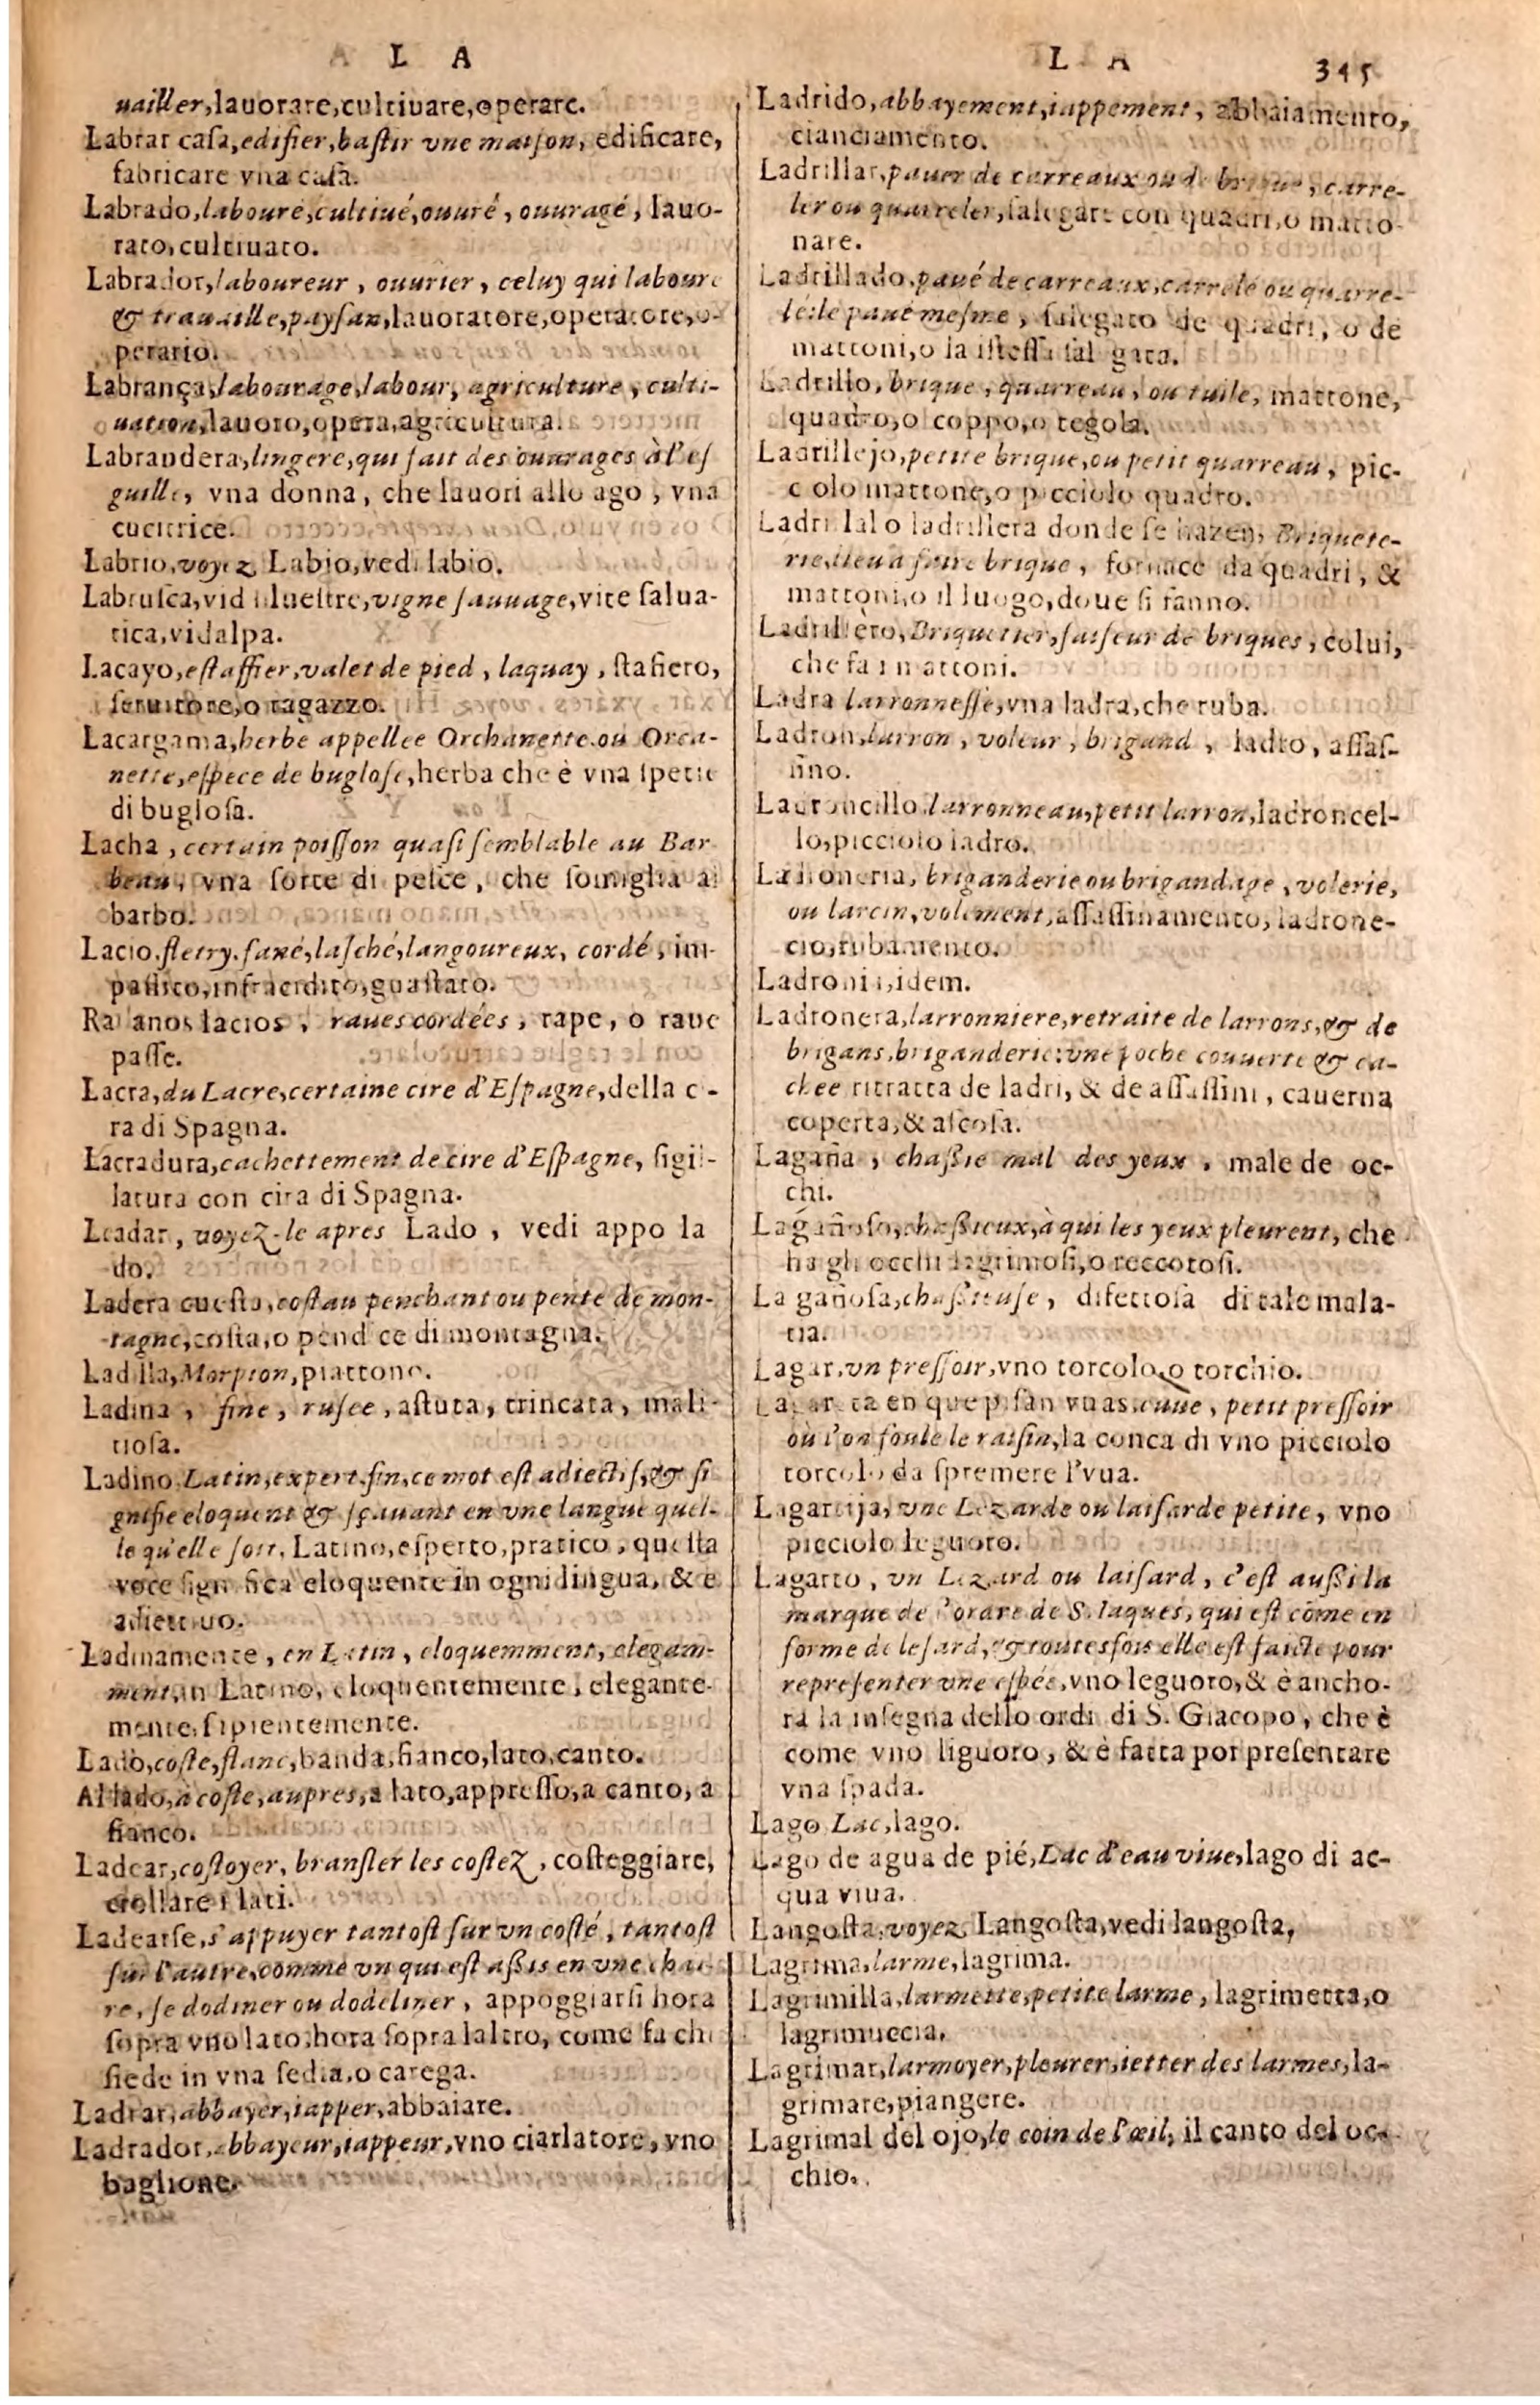 L A
uailler, lauorare, cultiuare, operare.
Labrar casa, edifier, bastir vne maison, edificare,
fabricare vna casa.
Labrado, labouré, cultiué, ouuré, ouuragé, lauo-
rato, cultiuato.
Labrador, laboureur, ouurier, celuy qui laboure
& trauaille, paysan, lauoratore, operatore, o-
perario.
Labrança, labourage, labour, agriculture, culti-
uation, lauoro, opera, agricultura.
Labrandera, lingere, qui fait des ouurages à l'es
guille, vna donna, che lauori allo ago, vna
cucitrice.
Labrio, voyez Labio, vedi labio.
Labrusca, vid siluestre, vigne sauuage, vite salua-
tica, vidalpa.
Lacayo, estaffier, valet de pied, laquay, stafiero,
seruitore, o ragazzo.
Lacargama, herbe appellee Orchanette, ou Orca-
nette, espece de buglose, herba che è vna spetie
di buglosa.
Lacha, certain poisson quasi semblable au Bar
beau, vna sorte di pesce, che somiglia al
barbo.
Lacio, fletry, fané, lasché, langoureux, cordé, im-
passito, infracidito, guastato.
Rauanos lacios, raues cordées, rape, o raue
passe.
Lacra, du Lacre, certaine cire d'Espagne, della ci-
ra di Spagna.
Lacradura, cachettement de cire d'Espagne, sigil-
latura con cira di Spagna.
Leadar, voyez-le apres Lado, vedi appo la
do.
Ladera cuesta, costau penchant ou pente de mon-
tagne, costa, o pendice di montagna.
Ladilla, Morpion, piattone.
Ladina, fine, rusee, astuta, trincata, mali-
tiosa.
Ladino, Latin, expert, fin, ce mot est adiectif, & si
gnifie eloquent & sçauant en vne langue quel-
le qu'elle soit, Latino, esperto, pratico, questa
voce significa eloquente in ogni lingua, & è
adiettiuo.
Ladinamente, en Latin, eloquemment, elegam-
ment, in Latino, eloquentemente, elegante-
mente, sipientemente.
Lado, coste, flanc, banda, fianco, lato, canto.
Al lado, à coste, aupres, a lato, appresso, a canto, a
fianco.
Ladear, costoyer, bransler les costez, costeggiare,
crollare i lati.
Ladearse, s'appuyer tantost sur vn costé, tantost
sur l'autre, comme vn qui est assis en vne chai-
re, se dodiner ou dodeliner, appoggiarsi hora
sopra vno lato, hora sopra laltro, come fa chi
siede in vna sedia, o carega.
Ladrar, abbayer, iapper, abbaiare.
Ladrador, abbayeur, iappeur, vno ciarlatore, vno
baglione.
L A 345
Ladrido, abbayement, iappement, abbaiamento,
cianciamento.
Ladrillar, pauer de carreaux ou de brique, carre-
ler ou quarreler, salegare con quadri, o matto-
nare.
Ladrillado, paué de carreaux, carrelé ou quarre-
lé: le paué mesme, salegato de quadri, o de
mattoni, o la istessa salegata.
Ladrillo, brique, quarreau, ou tuile, mattone,
quadro, o coppo, o tegola.
Ladrillejo, petite brique, ou petit quarreau, pic-
ciolo mattone, o picciolo quadro.
Ladrillal o ladrillera donde se hazen, Briquete-
rie, lieu a faire brique, fornace da quadri, &
mattoni, o il luogo, doue si fanno.
Ladrillero, Briquetier, faiseur de briques, colui,
che fa i mattoni.
Ladra larronnesse, vna ladra, che ruba.
Ladron, larron, voleur, brigand, ladro, assas-
sino.
Ladroncillo, larronneau, petit larron, ladroncel-
lo, picciolo ladro.
Ladroneria, briganderie ou brigandage, volerie,
ou larcin, volement, assassinamento, ladrone-
cio, rubamento.
Ladronia, idem.
Ladronera, larronniere, retraite de larrons, & de
brigans, briganderie: vne poche couuerte & ca-
chee ritratta de ladri, & de assassini, cauerna
coperta, & ascosa.
Lagaña, chassie mal des yeux, male de oc-
chi.
Lagañoso, chassieux, à qui les yeux pleurent, che
ha gli occhi lagrimosi, o reccotosi.
La gañosa, chassieuse, difettosa di tale mala-
tia.
Lagar, vn pressoir, vno torcolo, o torchio.
Lagareta en que pisan vuas, cuue, petit pressoir
où l'on foule le raisin, la conca di vno picciolo
torcolo da spremere l'vua.
Lagartija, vne Lezarde ou laisarde petite, vno
picciolo leguoro.
Lagarto, vn Lezard ou laisard, c'est aussi la
marque de l'ordre de S. Iaques, qui est cõme en
forme de lesard, & toutesfois elle est faicte pour
representer vne espée, vno leguoro, & è ancho-
ra la insegna dello ordi di S. Giacopo, che è
come vno liguoro, & è fatta por presentare
vna spada.
Lago Lac, lago.
Lago de agua de pié, Lac d'eau viue, lago di ac-
qua viua.
Langosta, voyez Langosta, vedi langosta,
Lagrima, larme, lagrima.
Lagrimilla, larmette, petite larme, lagrimetta, o
lagrimuccia.
Lagrimar, larmoyer, pleurer, ietter des larmes, la-
grimare, piangere.
Lagrimal del ojo, le coin de l'œil, il canto del oc-
chio.